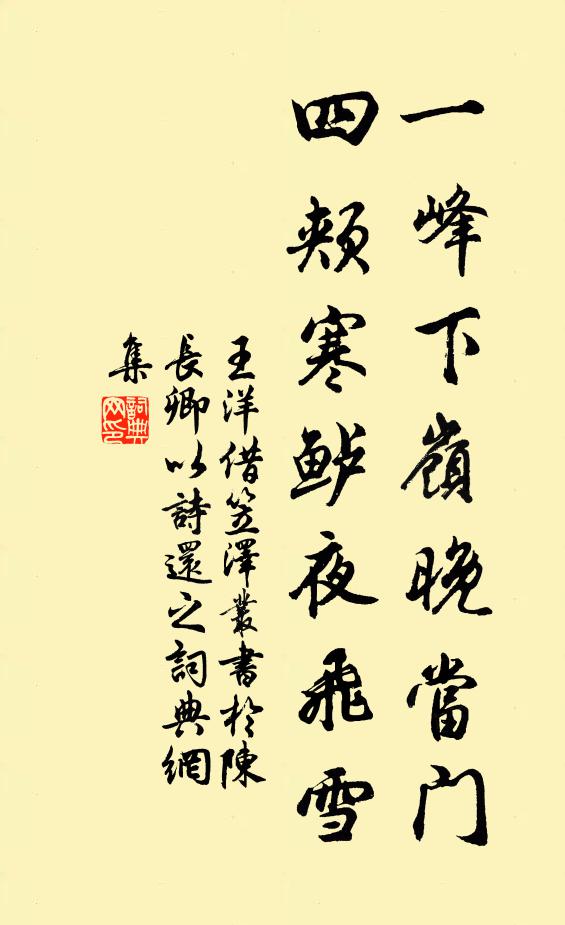 一峰下嶺晚當门
四頰寒鲈夜飛雪
王洋借笠澤叢書於陳
長卿以詩還之詞典網
集
詞典网印